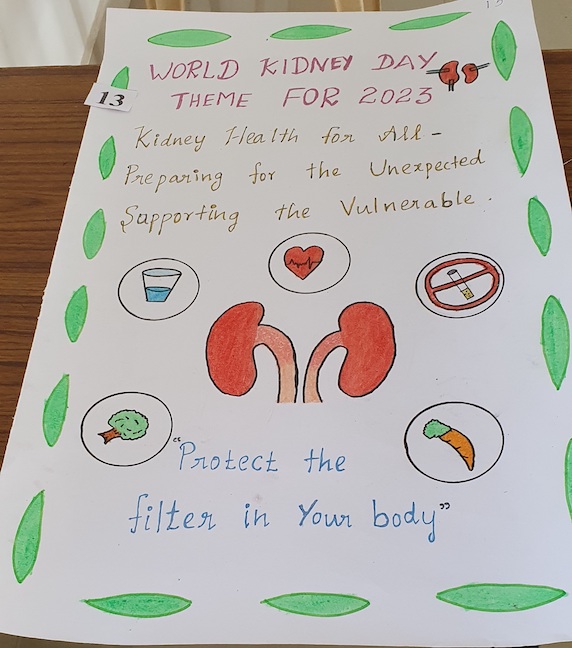 WORLD KIDNEY DAY
13
THEME FOR 2023
Kidney Health for All -
Preparing for the Unexpected
Supporting the Vulnerable.
"Protect the
filter in Your body"